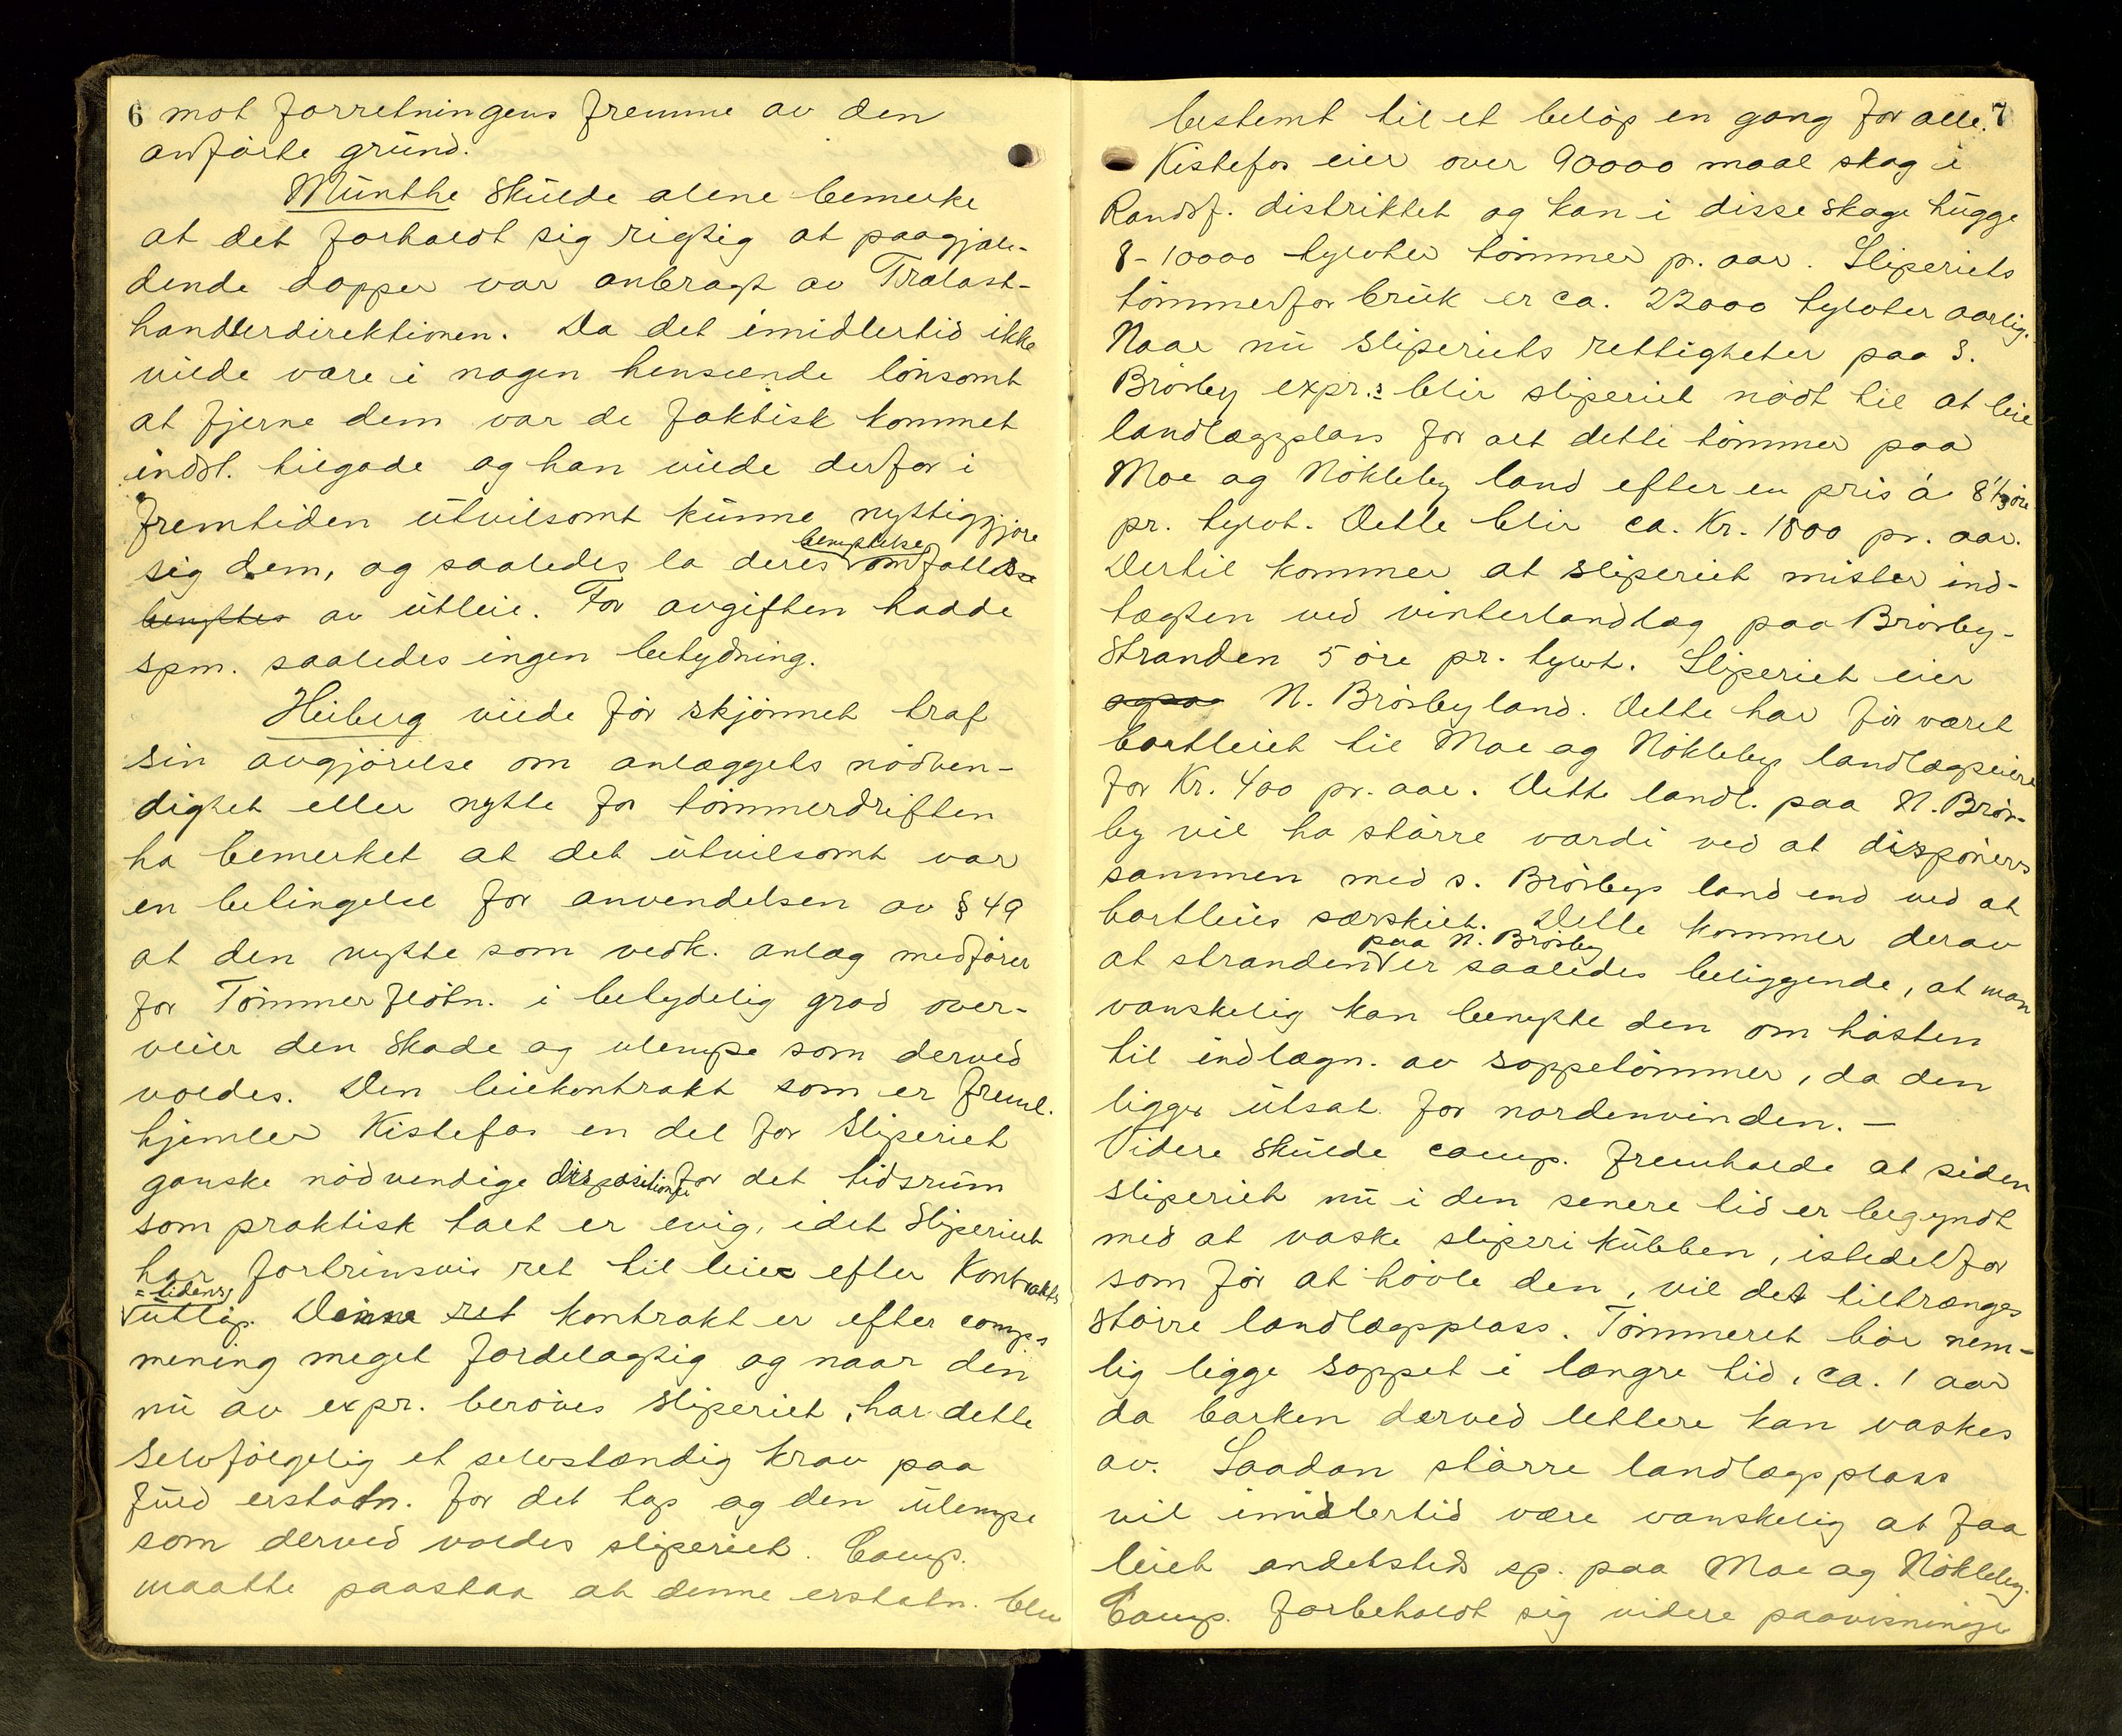 6 mot forretningens fremme av den
anførte grund.
Munthe skulde alene bemerke
at det forholdt sig rigtig at paagjæl-
dende dopper var anbragt av Trælast-
handlerdirektionen. Da det imidlertid ikke
vilde være i nogen henseende lønsomt
at fjerne dem var de faktisk kommet
indst. tilgode og han vilde derfor i
fremtiden utvilsomt kunne nyttiggjøre
sig dem, og saaledes la deres benyttelse omfattes
benyttes av utleie. For avgiften hadde
spm. saaledes ingen betydning.
Heiberg vilde før skjønnet traf
sin avgjørelse om anlæggets nødven-
dighet eller nytte for tømmerdriften
ha bemerket at det utvilsomt var
en betingelse for anvendelsen av § 49
at den nytte som vedk. anlæg medfører
for Tømmerfløtn. i betydelig grad over-
veier den skade og ulempe som derved
voldes. Den leiekontrakt som er freml.
hjemler Kistefos en del for Sliperiet
ganske nødvendige dispositioner for det tidsrum
som praktisk talt er evig, idet Sliperiet
har fortrinsvis ret til leie efter Kontrakts
=tidens utløp. Denne ret kontrakt er efter comp.s
mening meget fordelagtig og naar den
nu av expr. berøves sliperiet, har dette
selvfølgelig et selvstændig krav paa
fuld erstatn. for det tap og den ulempe
som derved voldes sliperiet. Comp.
maatte paastaa at denne erstatn. blev
bestemt til et beløp en gang for alle. 7
Kistefos eier over 90000 maal skog i
Randsf. distriktet og kan i disse skoge hugge
8-10000 tylvter tømmer p. aar. Sliperiets
tømmerforbruk er ca. 22000 tylvter aarlig.
Naar nu sliperiets rettigheter paa S.
Brørby expr.s blir sliperiet nødt til at leie
landlægsplass for alt dette tømmer paa
Moe og Nøkleby land efter en pris á 8 1/3 øre
pr. tylvt. Dette blir ca. Kr. 1800 pr. aar.
Dertil kommer at sliperiet mister ind-
tægten ved vinterlandlæg paa Brørby-
stranden 5 øre pr. tylvt. Sliperiet eier
ogsaa N. Brørby land. Dette har før været
bortleiet til Moe og Nøkleby landlægseiere
for Kr. 400 pr. aar. Dette landl. paa N. Brør-
by vil ha større værdi ved at disponeres
sammen med s. Brørbys land end ved at
bortleies særskilt. Dette kommer derav
at stranden paa N. Brørby er saaledes beliggende, at man
vanskelig kan benytte den om høsten
til indlægn. av soppetømmer, da den
ligger utsat for nordenvinden. —
Videre skulde comp. fremholde at siden
sliperiet nu i den senere tid er begyndt
med at vaske sliperikubben, istedetfor
som før at høvle den, vil det tiltrænges
større landlægsplass. Tømmeret bør nem-
lig ligge soppet i længre tid, ca. 1 aar
da barken derved lettere kan vaskes
av. Saadan større landlægsplass
vil imidlertid være vanskelig at faa
leiet andetsteds sp. paa Moe og Nøkleby.
Comp. forbeholdt sig videre paavisninger